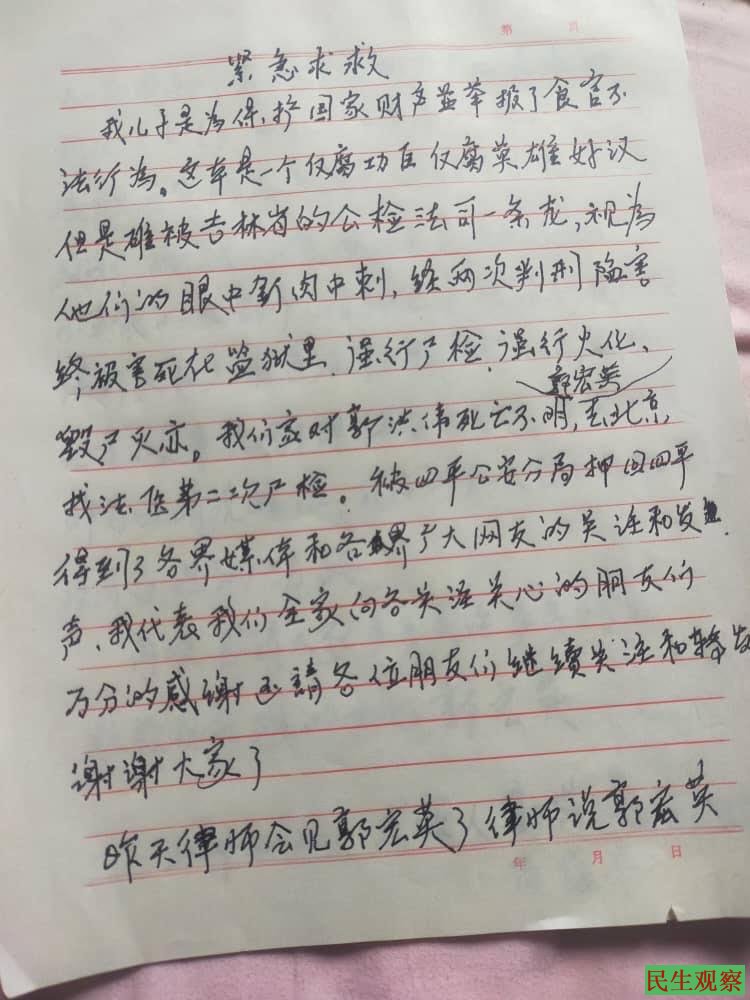 第 页
紧急求救
我儿子是为保护国家财产监举报了贪官不
法行为。这本是一个反腐功臣反腐英雄好汉
但是谁被吉林省的公检法司一条龙，视为
他们的眼中钉肉中刺，经两次判刑陷害
终被害死在监狱里、强行尸检、强行火化、
郭宏英
毁尸灭迹。我们家对郭洪伟死亡不明，去北京，
找法医第二次尸检。被四平公安分局押回四平
得到了各界媒体和各界广大网友的关注和发
声、我代表我们全家向各关注关心的朋友们
万分的感谢 请各位朋友们继续关注和转发
谢谢大家了
昨天律师会见郭宏英了律师说郭宏英
年 月 日
民生观察